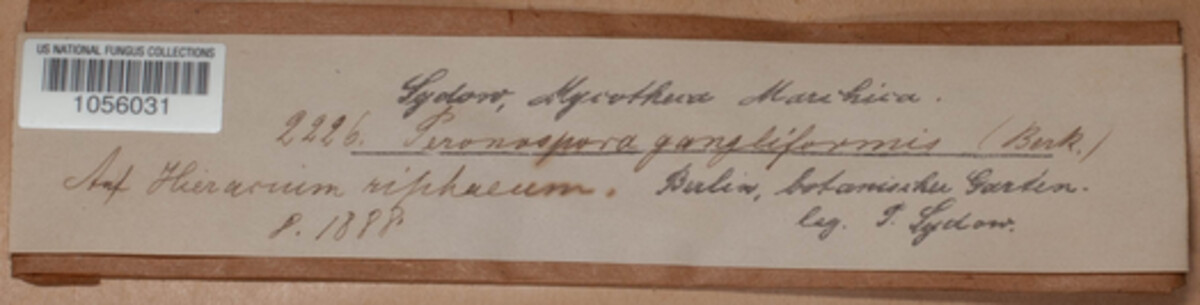 US NATIONAL FUNGUS COLLECTIONS
1056031
Sydow, Mycotheca Marchica.
2226. Peronospora gangliformis (Berk.)
Auf Hieracium riphaeum. Berlin, botanischer Garten.
8. 1888 leg. P. Sydow.